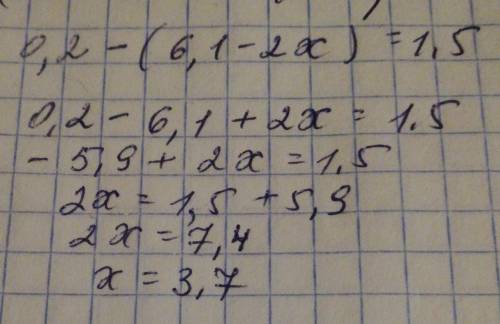 0,2 - (6,1 - 2x) = 1,5
0,2 - 6,1 + 2x = 1.5
- 5,9 + 2x = 1,5
2x = 1,5 + 5,9
2x = 7,4
x = 3,7